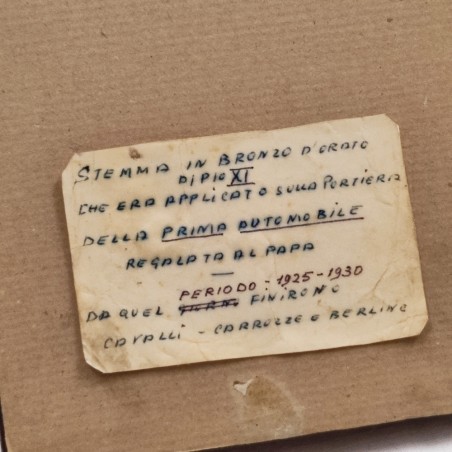 STEMMA IN BRONZO D'ORATO
DI PIO XI
CHE ERA APPLICATO SULLA PORTIERA
DELLA PRIMA AUTOMOBILE
REGALATA AL PAPA
PERIODO: 1925-1930
DA QUEL FINIRONO
CAVALLI - CARROZZE O BERLINE